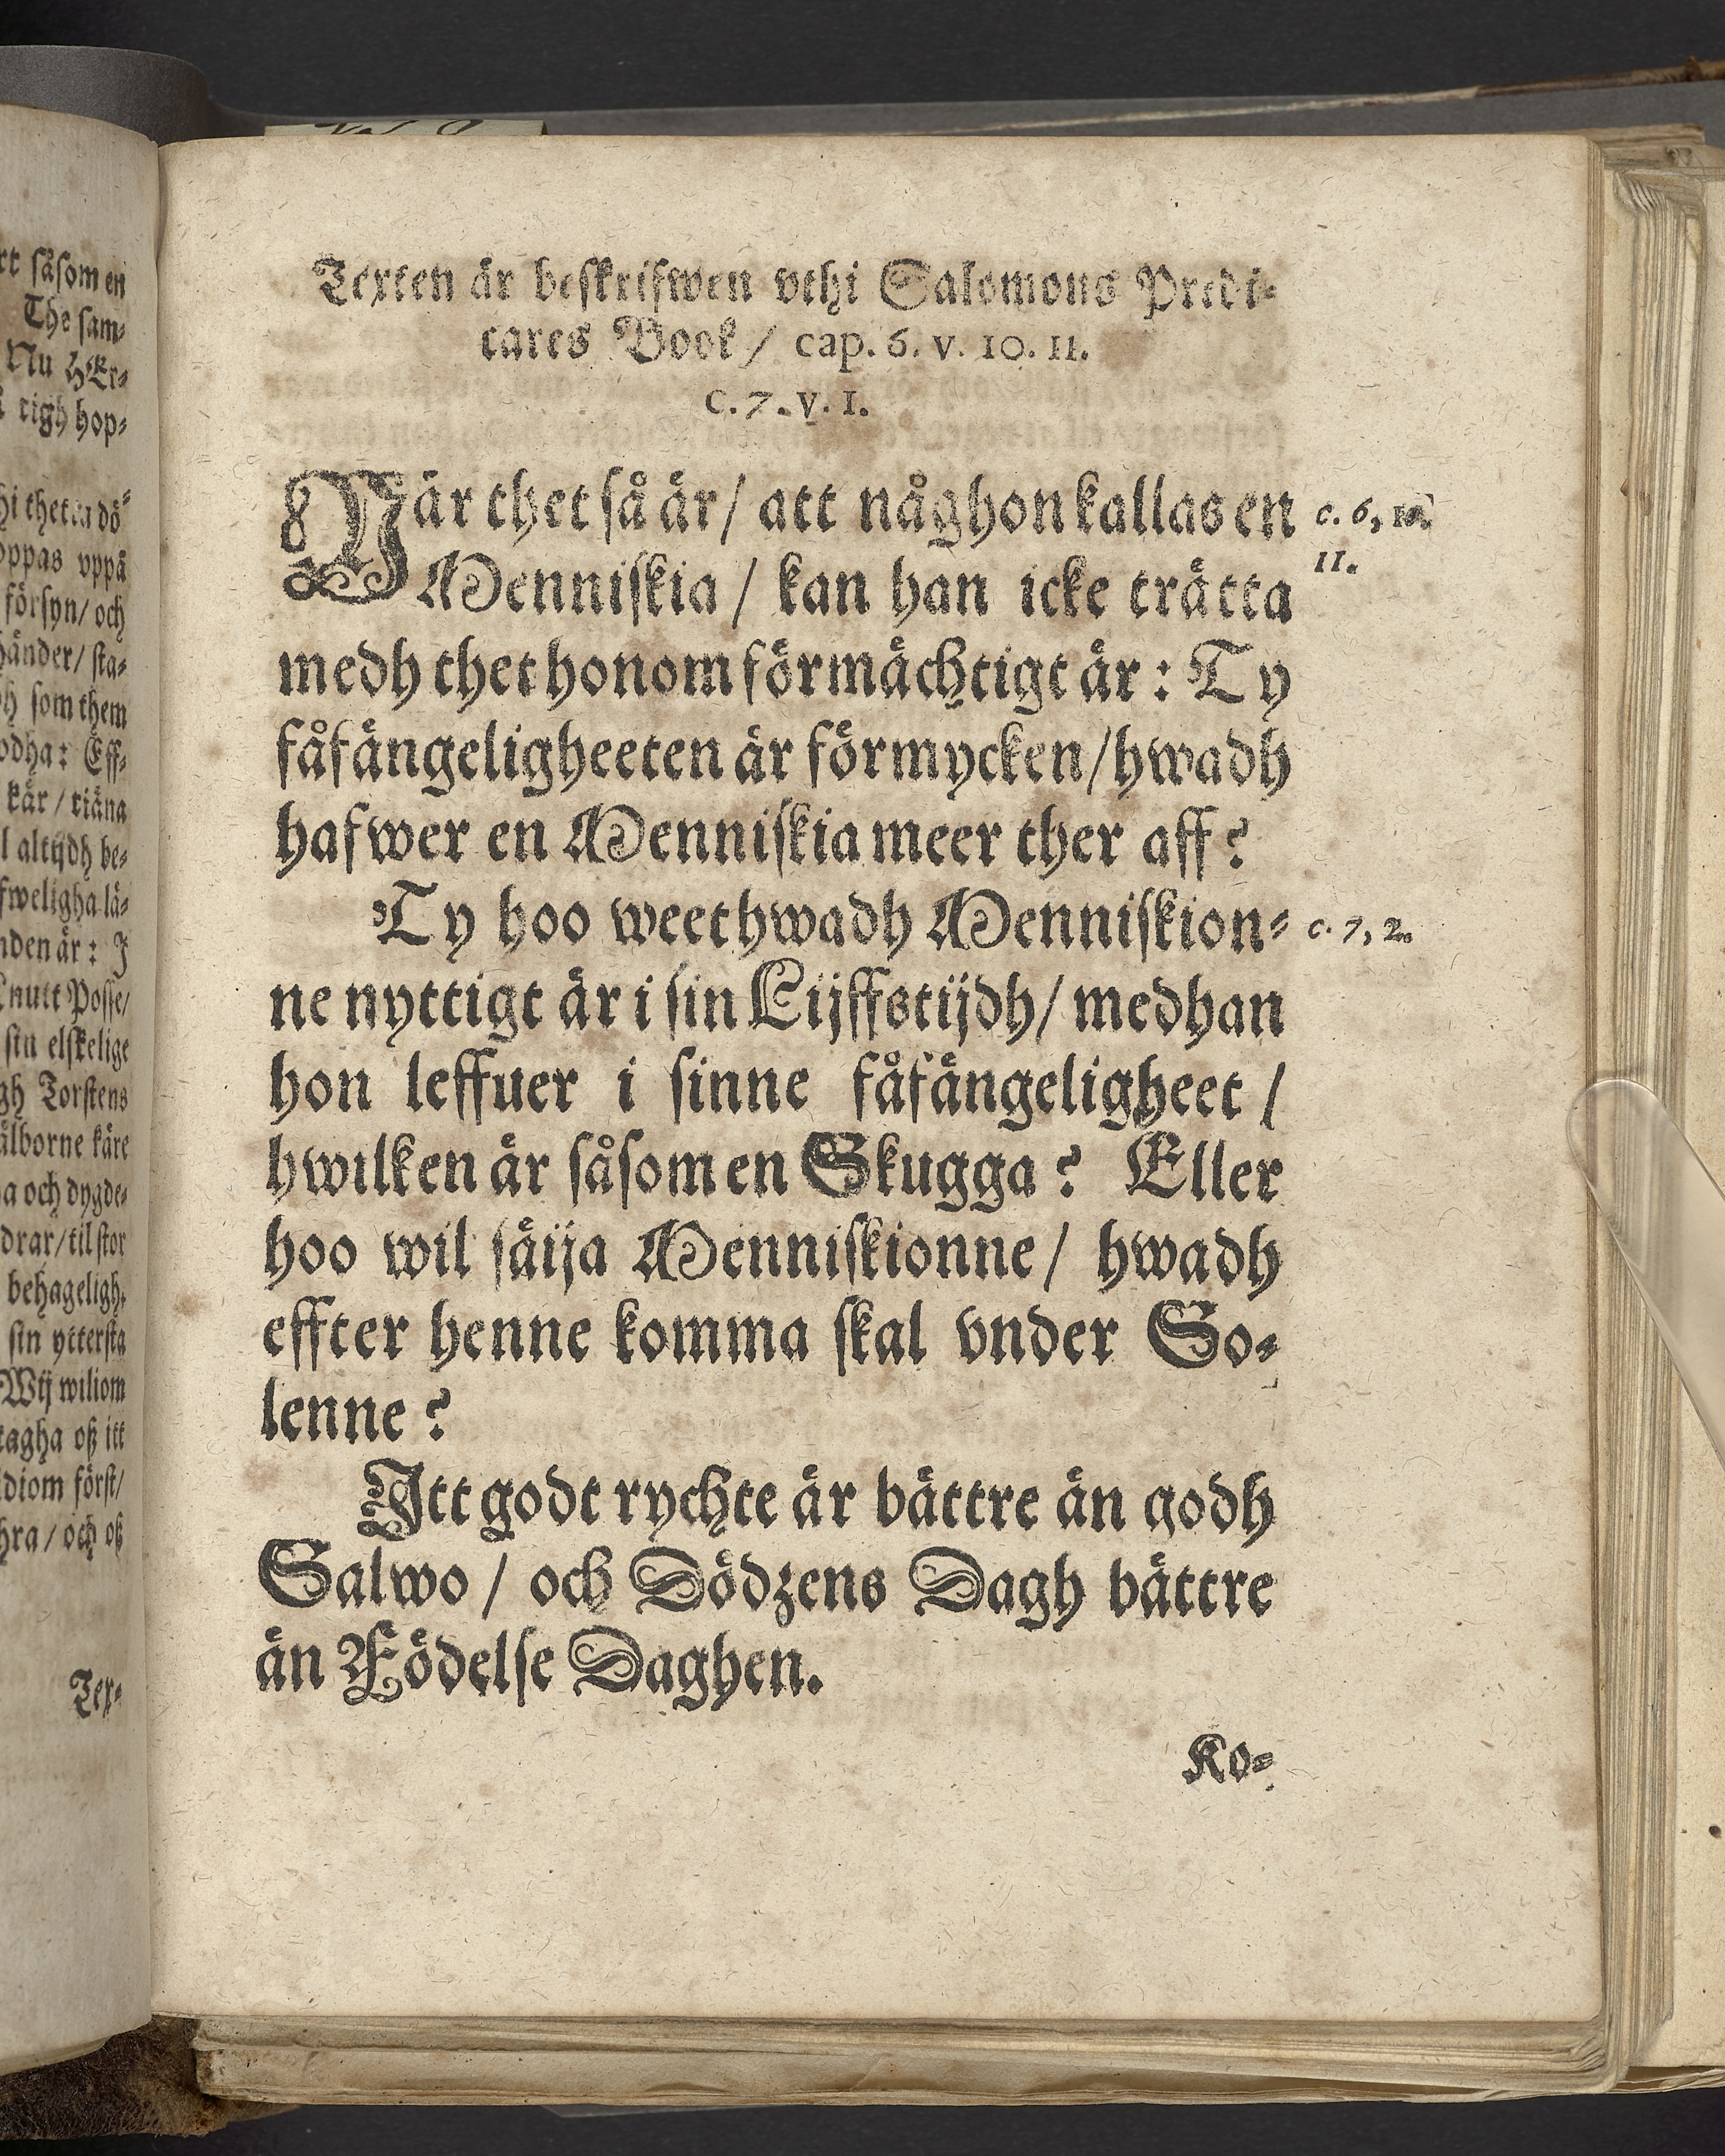 rt såsom en
The sam-
Nu HEr-
tigh hop-
hi thetta dö-
oppas vppå
försyn/ och
händer/ sta-
som them
odha: Eff-
kär / tiäna
l altijdh be-
fweligha lä-
nden är: J
Cnutt Posse/
sin elskelige
gh Torstens
älborne käre
a och dygde-
drar/ til stor
behageligh-
sin yttersta
Wij wiliom
tagha oß itt
diom först/
hra / och oß
Tex-
Texten är beskrifwen vthi Salomons Predi-
cares Book / cap. 6. v. 10. 11.
c. 7. v. 1.
När thet så är / att någhon kallas en
Menniskia / kan han icke trätta
medh thet honom förmächtigt är : Ty
fåfängeligheeten är förmycken / hwadh
hafwer en Menniskia meer ther aff ?
c. 6, 10.
11.
Ty hoo weet hwadh Menniskion-
ne nyttigt är i sin Lijffstijdh / medhan
hon leffuer i sinne fåfängeligheet /
hwilken är såsom en Skugga ? Eller
hoo wil säija Menniskionne / hwadh
effter henne komma skal vnder So-
lenne ?
c. 7, 2.
Itt godt rychte är bättre än godh
Salwo / och Dödzens Dagh bättre
än Födelse Daghen.
Ko-